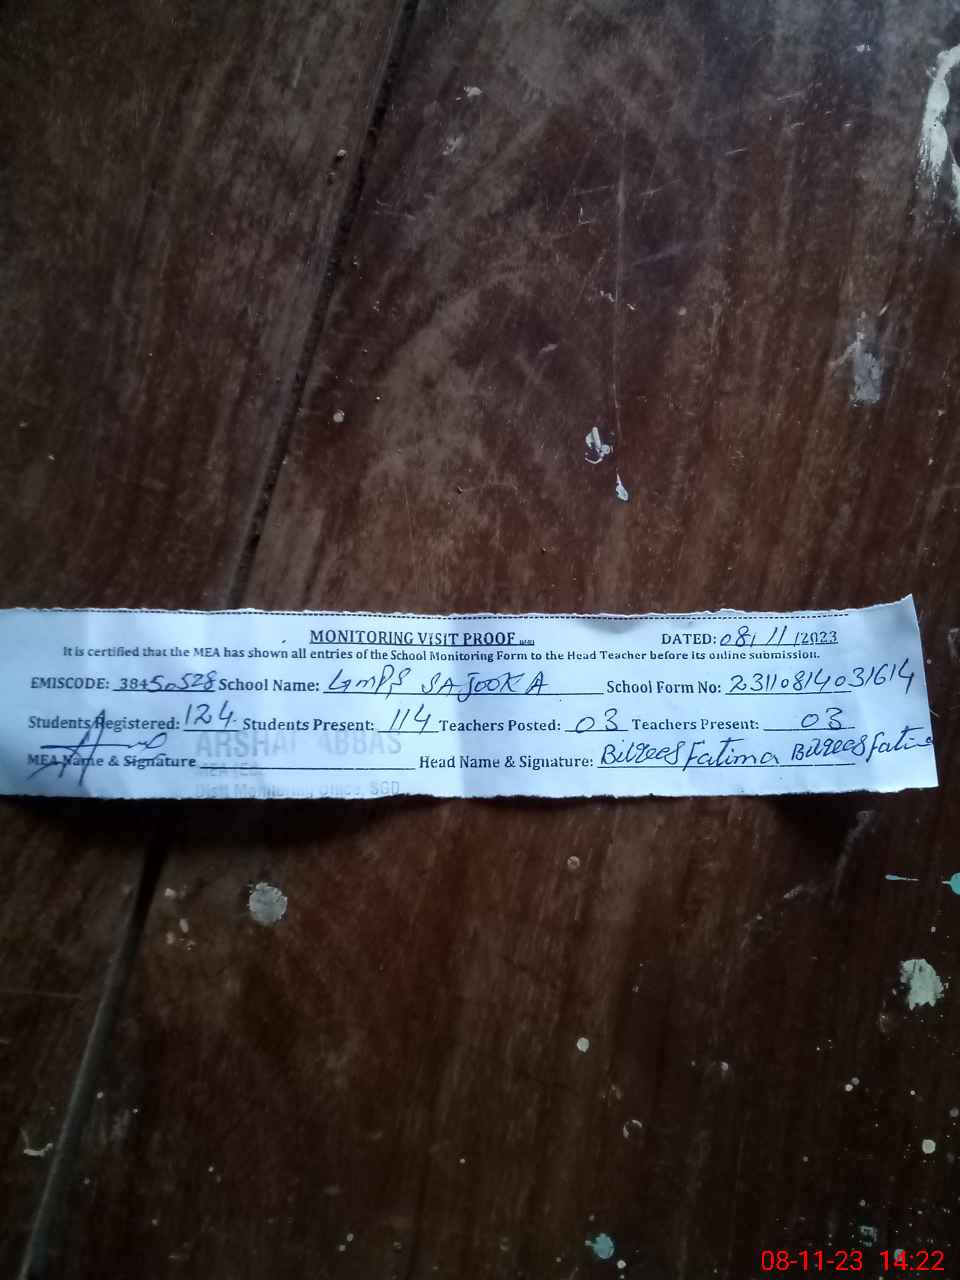 MONITORING VISIT PROOF DATED: 08/11/2023
It is certified that the MEA has shown all entries of the School Monitoring Form to the Head Teacher before its online submission.
EMISCODE: 38450528 School Name: GMPS SAJOOKA School Form No: 23110814031614
Students Registered: 124 Students Present: 114 Teachers Posted: 03 Teachers Present: 03
ARSHAD ABBAS
MEA Name & Signature Head Name & Signature: Bilqees Fatima Bilqees Fatima
Distt Monitoring Office, SGD
08-11-23 14:22